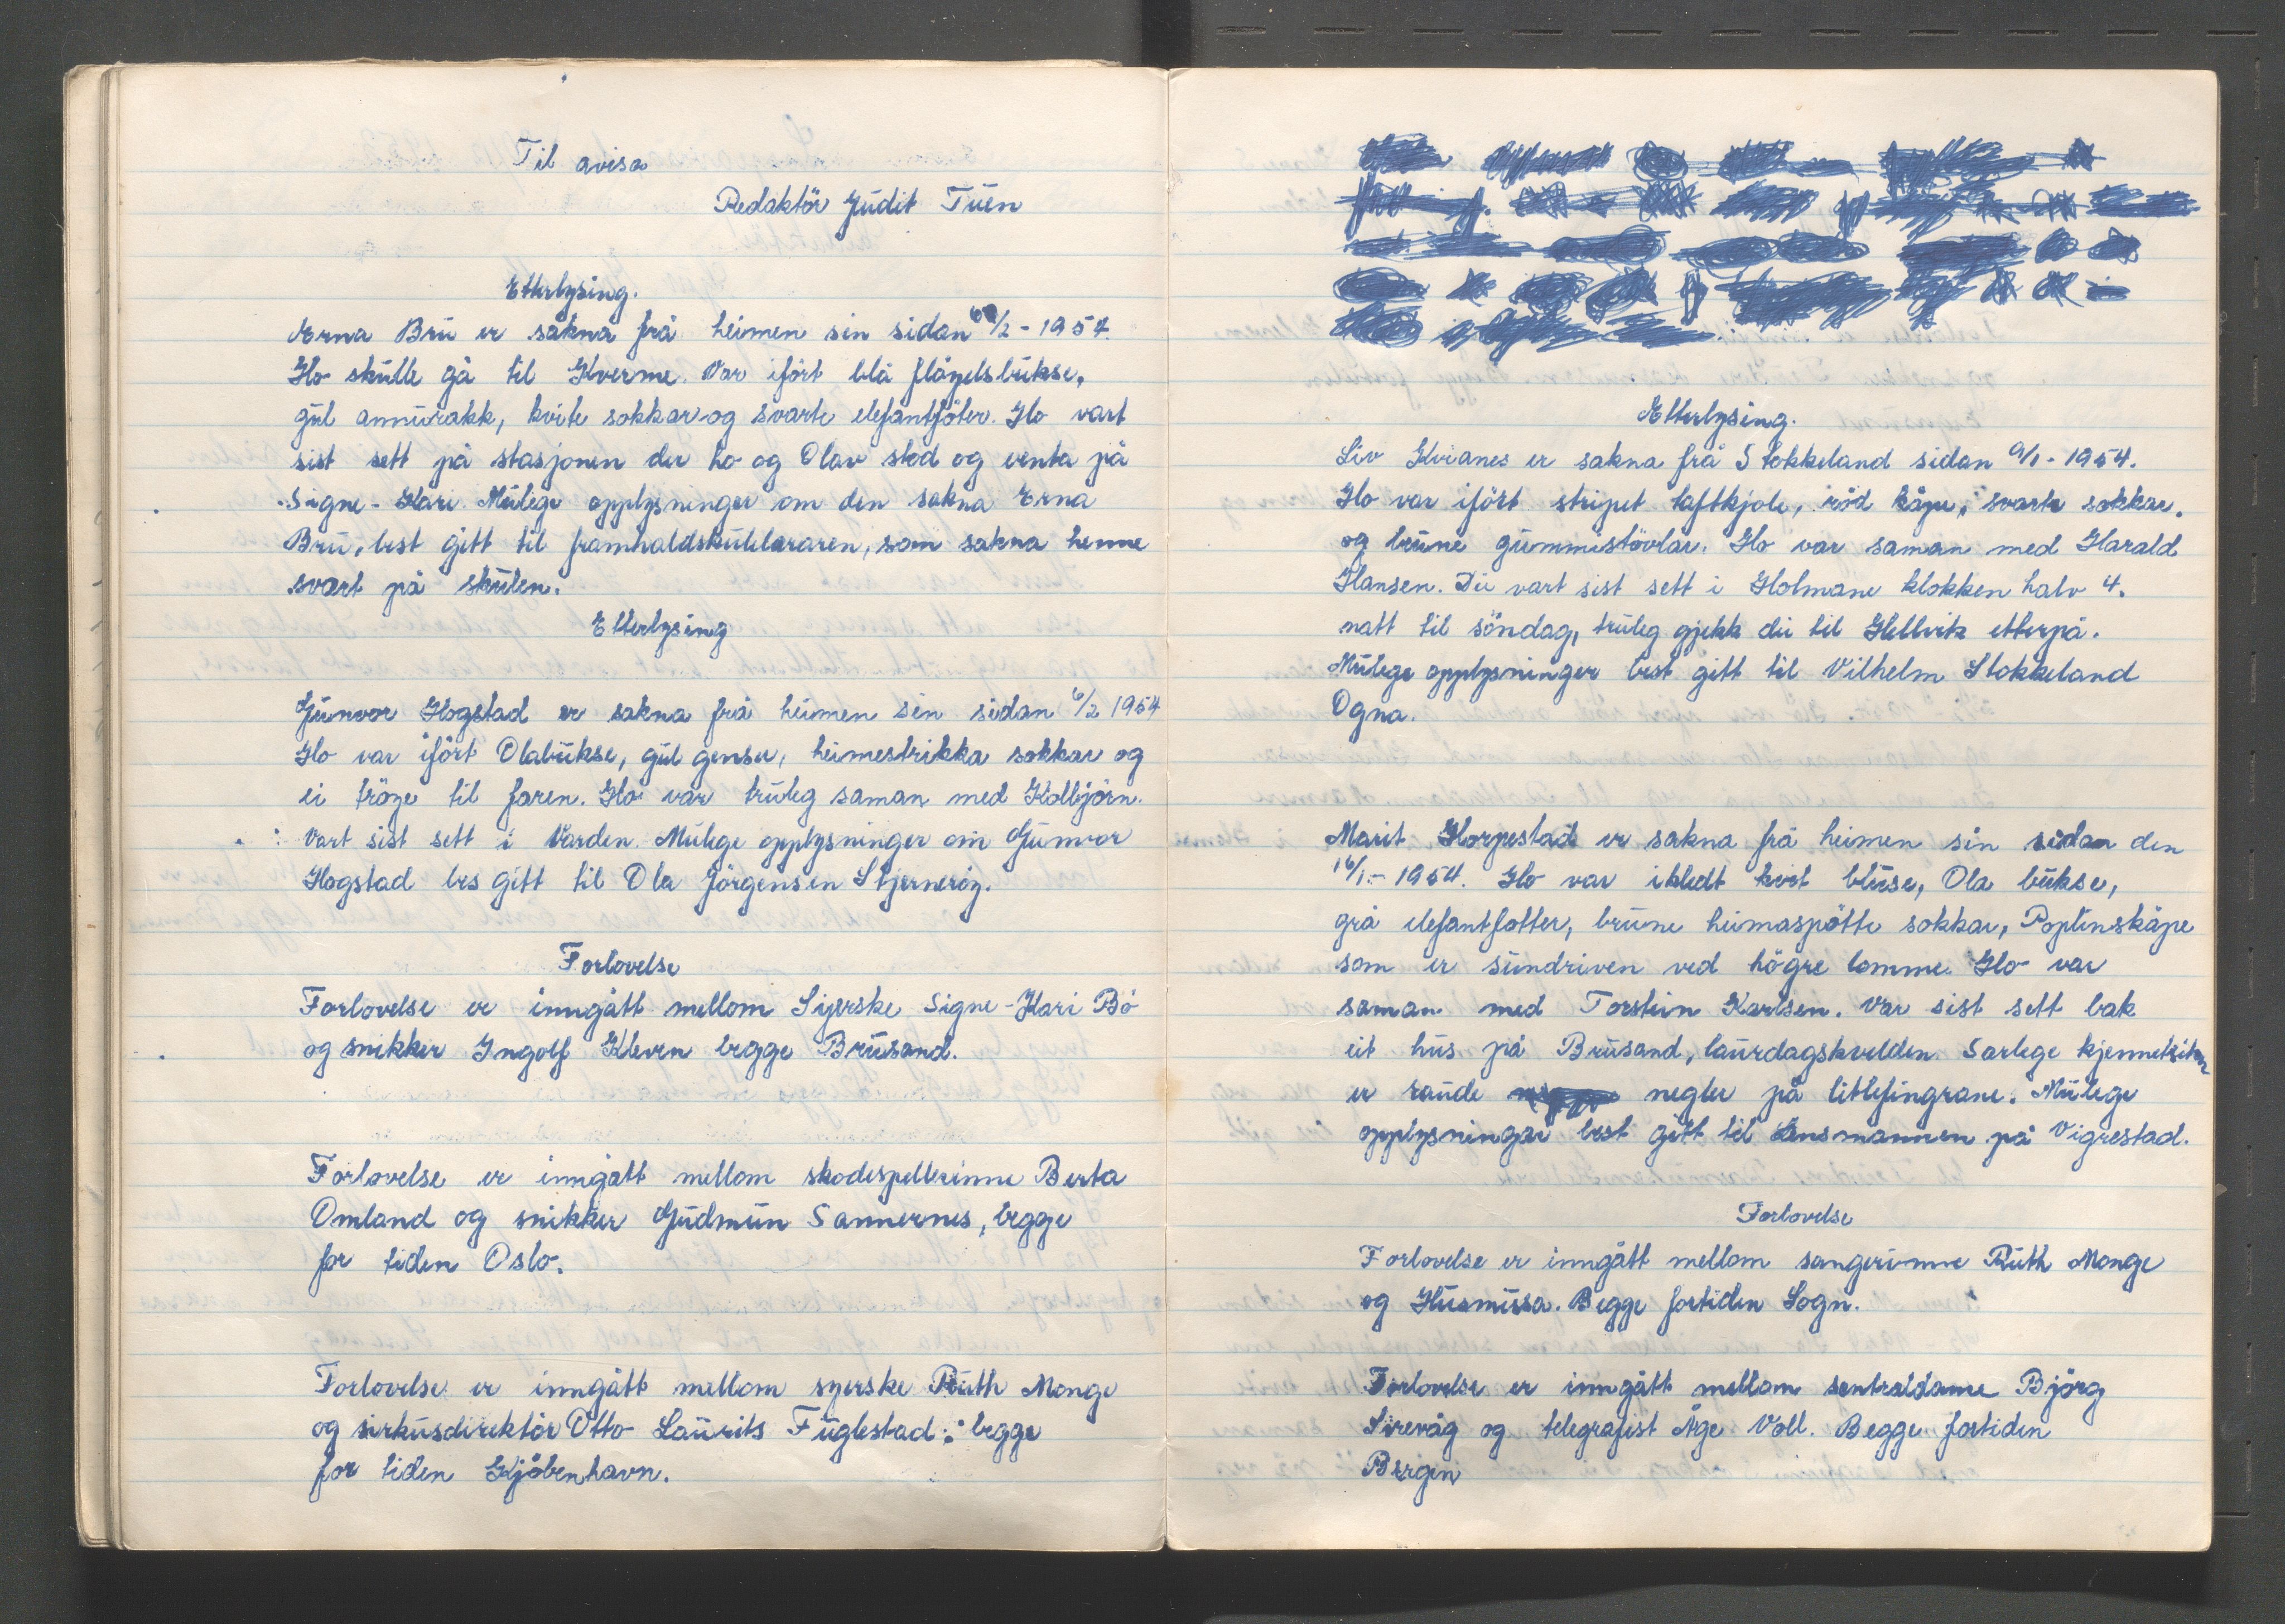 Til avisa
Redaktör Judit Tuen
Etterlysing.
Erna Bru er sakna frå heimen sin sidan 6/2 - 1954.
Ho skulle gå til Kverme. Var ifört blå flöyelsbukse,
gul annurakk, kvite sokkar og svarte elefantföter. Ho vart
sist sett på stasjonen der ho og Olav stod og venta på
Signe-Kari. Mulege opplysninger om den sakna Erna
Bru, best gitt til framhaldskulelæraren, som sakna henne
svært på skulen.
Etterlysing
Gunvor Hogstad er sakna frå heimen sin sidan 6/2 1954
Ho var ifört Olabukse, gul genser, heimestrikka sokkar og
ei tröye til faren. Ho var truleg saman med Kolbjörn.
Vart sist sett i Varden. Mulege opplysninger om Gunvor
Hogstad bes gitt til Ola Jörgensen Stjerneröy.
Forlovelse
Forlovelse er inngått mellom Syerske Signe-Kari Bö
og snikker Ingolf Kleven begge Brusand.
Forlovelse er inngått mellom skodespellerinne Berta
Omland og snikker Gudmun Sannernes, begge
for tiden Oslo.
Forlovelse er inngått mellom syerske Ruth Monge
og sirkusdirektör Otto Laurits Fuglestad, begge
for tiden Kjöbenhavn.
Etterlysing.
Liv Kvianes er sakna frå Stokkeland sidan 9/1 - 1954.
Ho var ifört stripet taftkjole, röd kåpe, svarte sokkar,
og brune gummistövlar. Ho var saman med Harald
Hansen. Du vart sist sett i Holmane klokken halv 4.
natt til söndag, truleg gjekk du til Hellvik etterpå.
Mulege opplysninger best gitt til Vilhelm Stokkeland
Ogna.
Marit Horpestad er sakna frå heimen sin sidan den
16/1 - 1954. Ho var ikledt kvit bluse, Ola bukse,
grå elefantfotter, brune heimaspötte sokkar, Poplinskåpe
som er sundriven ved högre lomme. Ho var
saman med Torstein Karlsen. Var sist sett bak
eit hus på Brusand, laurdagskvelden. Særlege kjenneteikn
er raude negler på litlefingrane. Mulege
opplysningar best gitt til Lensmannen på Vigrestad.
Forlovelse
Forlovelse er inngått mellom sangerinne Ruth Monge
og Husmussa. Begge fortiden Sogn.
Forlovelse er inngått mellom sentraldame Björg
Sirevåg og telegrafist Åge Voll. Begge fortiden
Bergen